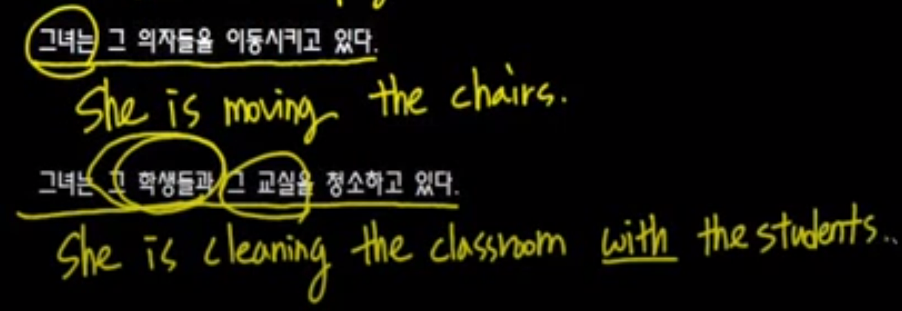 그녀는 그 의자들을 이동시키고 있다.
She is moving the chairs.
그녀는 그 학생들과 그 교실을 청소하고 있다.
She is cleaning the classroom with the students..